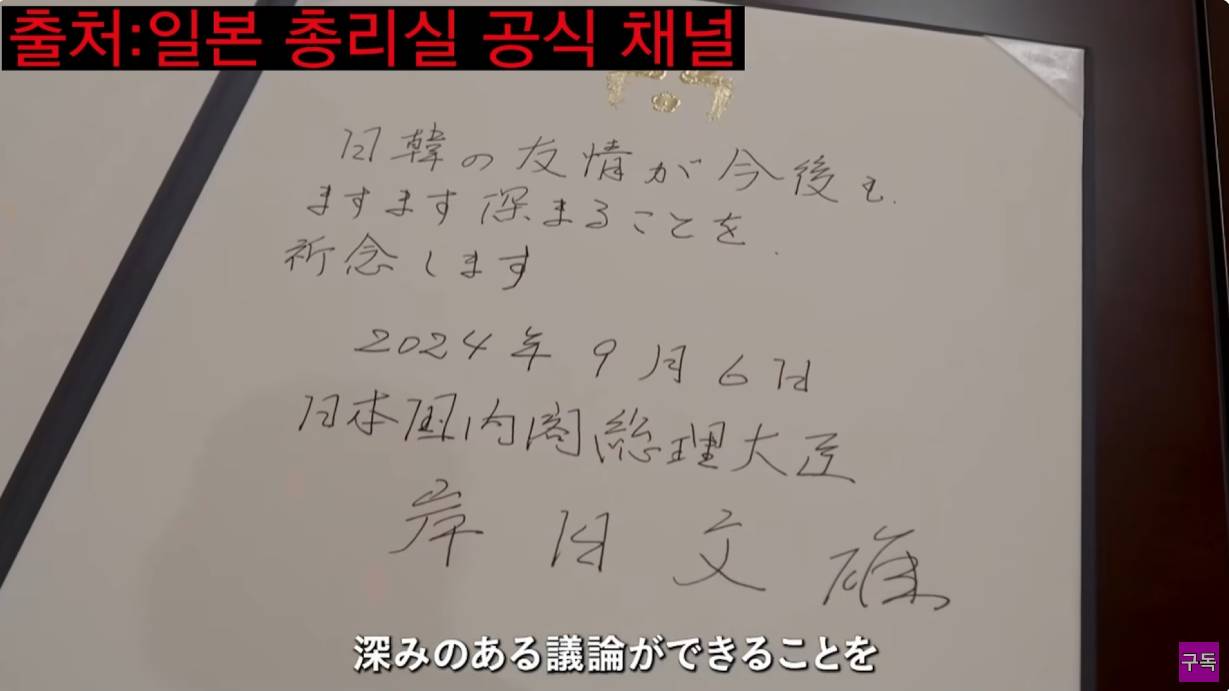 출처:일본 총리실 공식 채널
日韓の友情が今後も
ますます深まることを
祈念します
2024年9月6日
日本国内閣総理大臣
岸田文雄
深みのある議論ができることを
구독